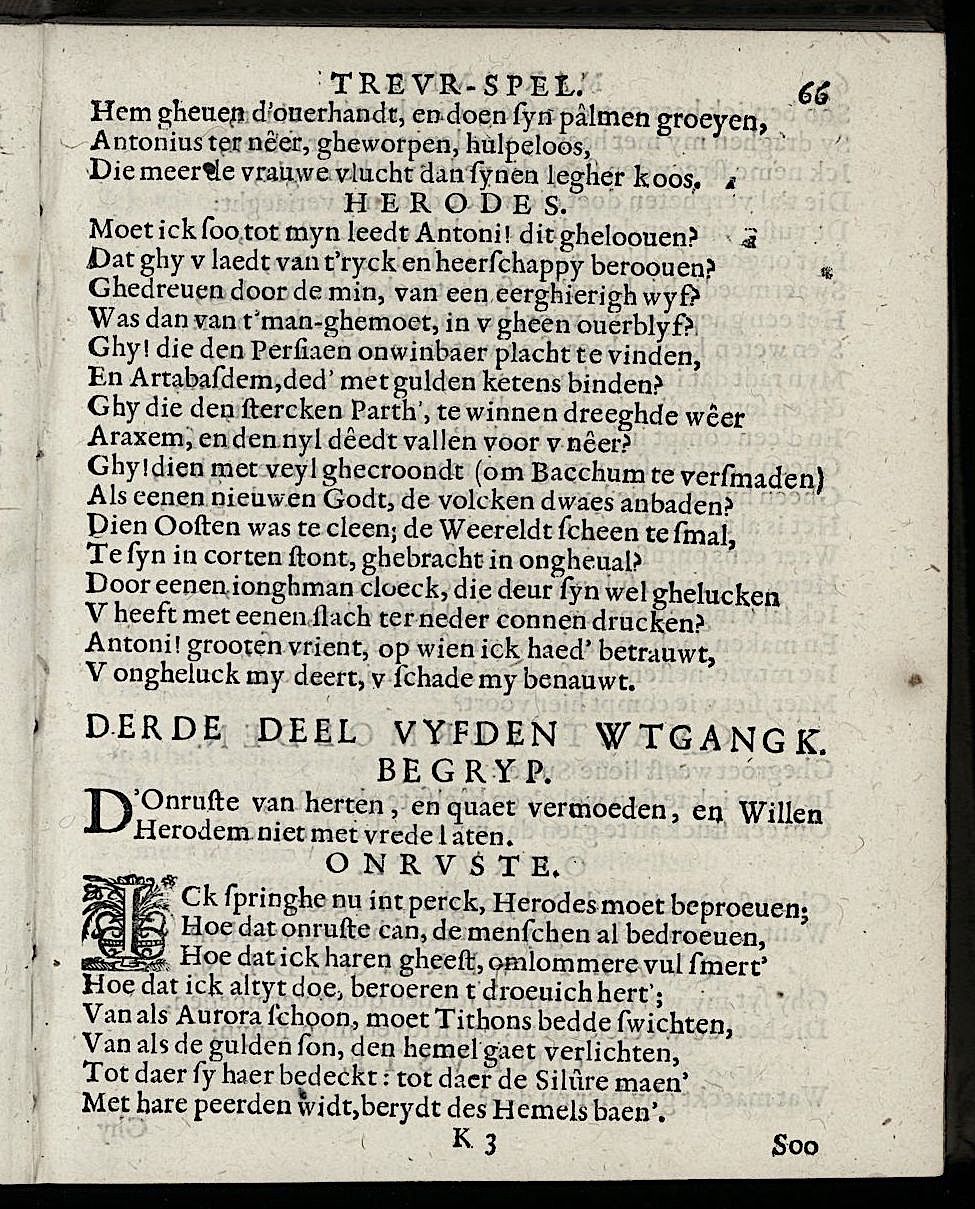 TREVR-SPEL. 66
Hem gheuen d'ouerhandt, en doen ſyn pâlmen groeyen,
Antonius ter nêer, gheworpen, hulpeloos,
Die meer de vrauwe vlucht dan ſynen legher koos.
HERODES.
Moet ick ſoo tot myn leedt Antoni! dit gheloouen?
Dat ghy v laedt van t'ryck en heerſchappy beroouen?
Ghedreuen door de min, van een eerghierigh wyf?
Was dan van t'man-ghemoet, in v gheen ouerblyf?
Ghy! die den Perſiaen onwinbaer placht te vinden,
En Artabaſdem, ded' met gulden ketens binden?
Ghy die den ſtercken Parth', te winnen dreeghde wêer
Araxem, en den nyl dêedt vallen voor v nêer?
Ghy! dien met veyl ghecroondt (om Bacchum te verſmaden)
Als eenen nieuwen Godt, de volcken dwaes anbaden?
Dien Ooſten was te cleen; de Weereldt ſcheen te ſmal,
Te ſyn in corten ſtont, ghebracht in ongheual?
Door eenen ionghman cloeck, die deur ſyn wel ghelucken
V heeft met eenen ſlach ter neder connen drucken?
Antoni! grooten vrient, op wien ick haed' betrauwt,
V ongheluck my deert, v ſchade my benauwt.
DERDE DEEL VYFDEN WTGANGK.
BEGRYP.
D'Onruſte van herten, en quaet vermoeden, en Willen
Herodem niet met vrede laten.
ONRVSTE.
ICk ſpringhe nu int perck, Herodes moet beproeuen;
Hoe dat onruſte can, de menſchen al bedroeuen,
Hoe dat ick haren gheeſt, omlommere vul ſmert'
Hoe dat ick altyt doe, beroeren t'droeuich hert';
Van als Aurora ſchoon, moet Tithons bedde ſwichten,
Van als de gulden ſon, den hemel gaet verlichten,
Tot daer ſy haer bedeckt: tot daer de Silûre maen'
Met hare peerden widt, berydt des Hemels baen'.
K 3 Soo